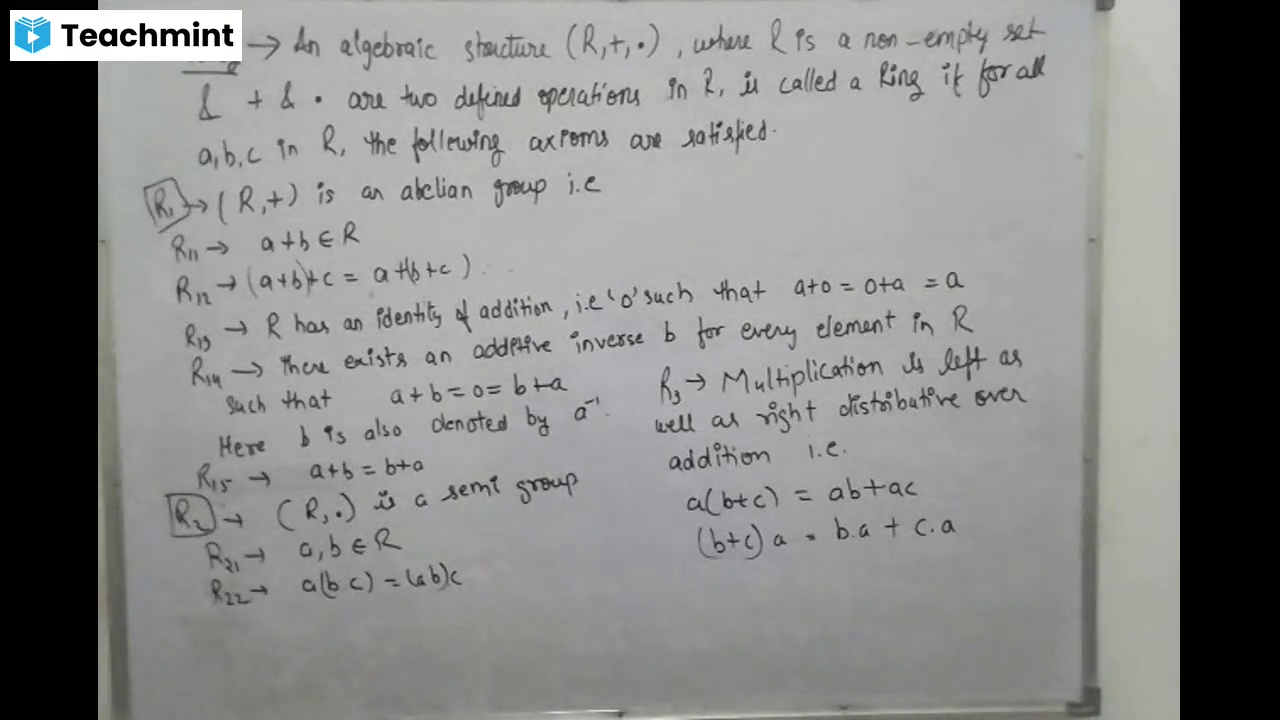 Teachmint
→ An algebraic structure (R,+,•), where R is a non-empty set
& + & • are two defined operations in R, is called a Ring if for all
a,b,c in R, the following axioms are satisfied.
R1 → (R,+) is an abelian group i.e
R11 → a+b ∈ R
R12 → (a+b)+c = a+(b+c)
R13 → R has an identity of addition, i.e '0' such that a+0 = 0+a = a
R14 → there exists an additive inverse b for every element in R
such that a+b=0=b+a
Here b is also denoted by a⁻¹.
R15 → a+b = b+a
R2 → (R,•) is a semi group
R21 → a,b ∈ R
R22 → a(bc) = (ab)c
R3 → Multiplication is left as
well as right distributive over
addition i.e.
a(b+c) = ab+ac
(b+c)a = b.a + c.a